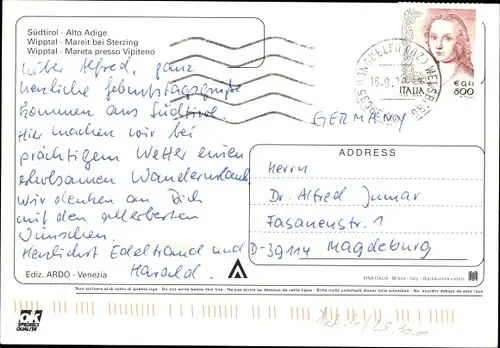 Südtirol - Alto Adige
Wipptal - Mareit bei Sterzing
Wipptal - Mareta presso Vipiteno
Lieber Alfred, ganz
herzliche Geburtstagsgrüße
kommen aus Südtirol.
Hier machen wir bei
prächtigem Wetter einen
erholsamen Wanderurlaub
Wir denken an Dich
mit den allerbesten
Wünschen.
Herzlichst Edeltraud und
Harald.
ITALIA
€ 0,41
800
GERMANY
ADDRESS
Herrn
Dr. Alfred Jumar
Fasanenstr. 1
D-39114 Magdeburg
Ediz. ARDO - Venezia
Non scrivere al di sotto di questa riga - Do not write below this line - Ne pas écrire au dessous de cette ligne - Bitte nicht unterhalb dieser Linie schreiben - No escribir debajo de esta raya
ok